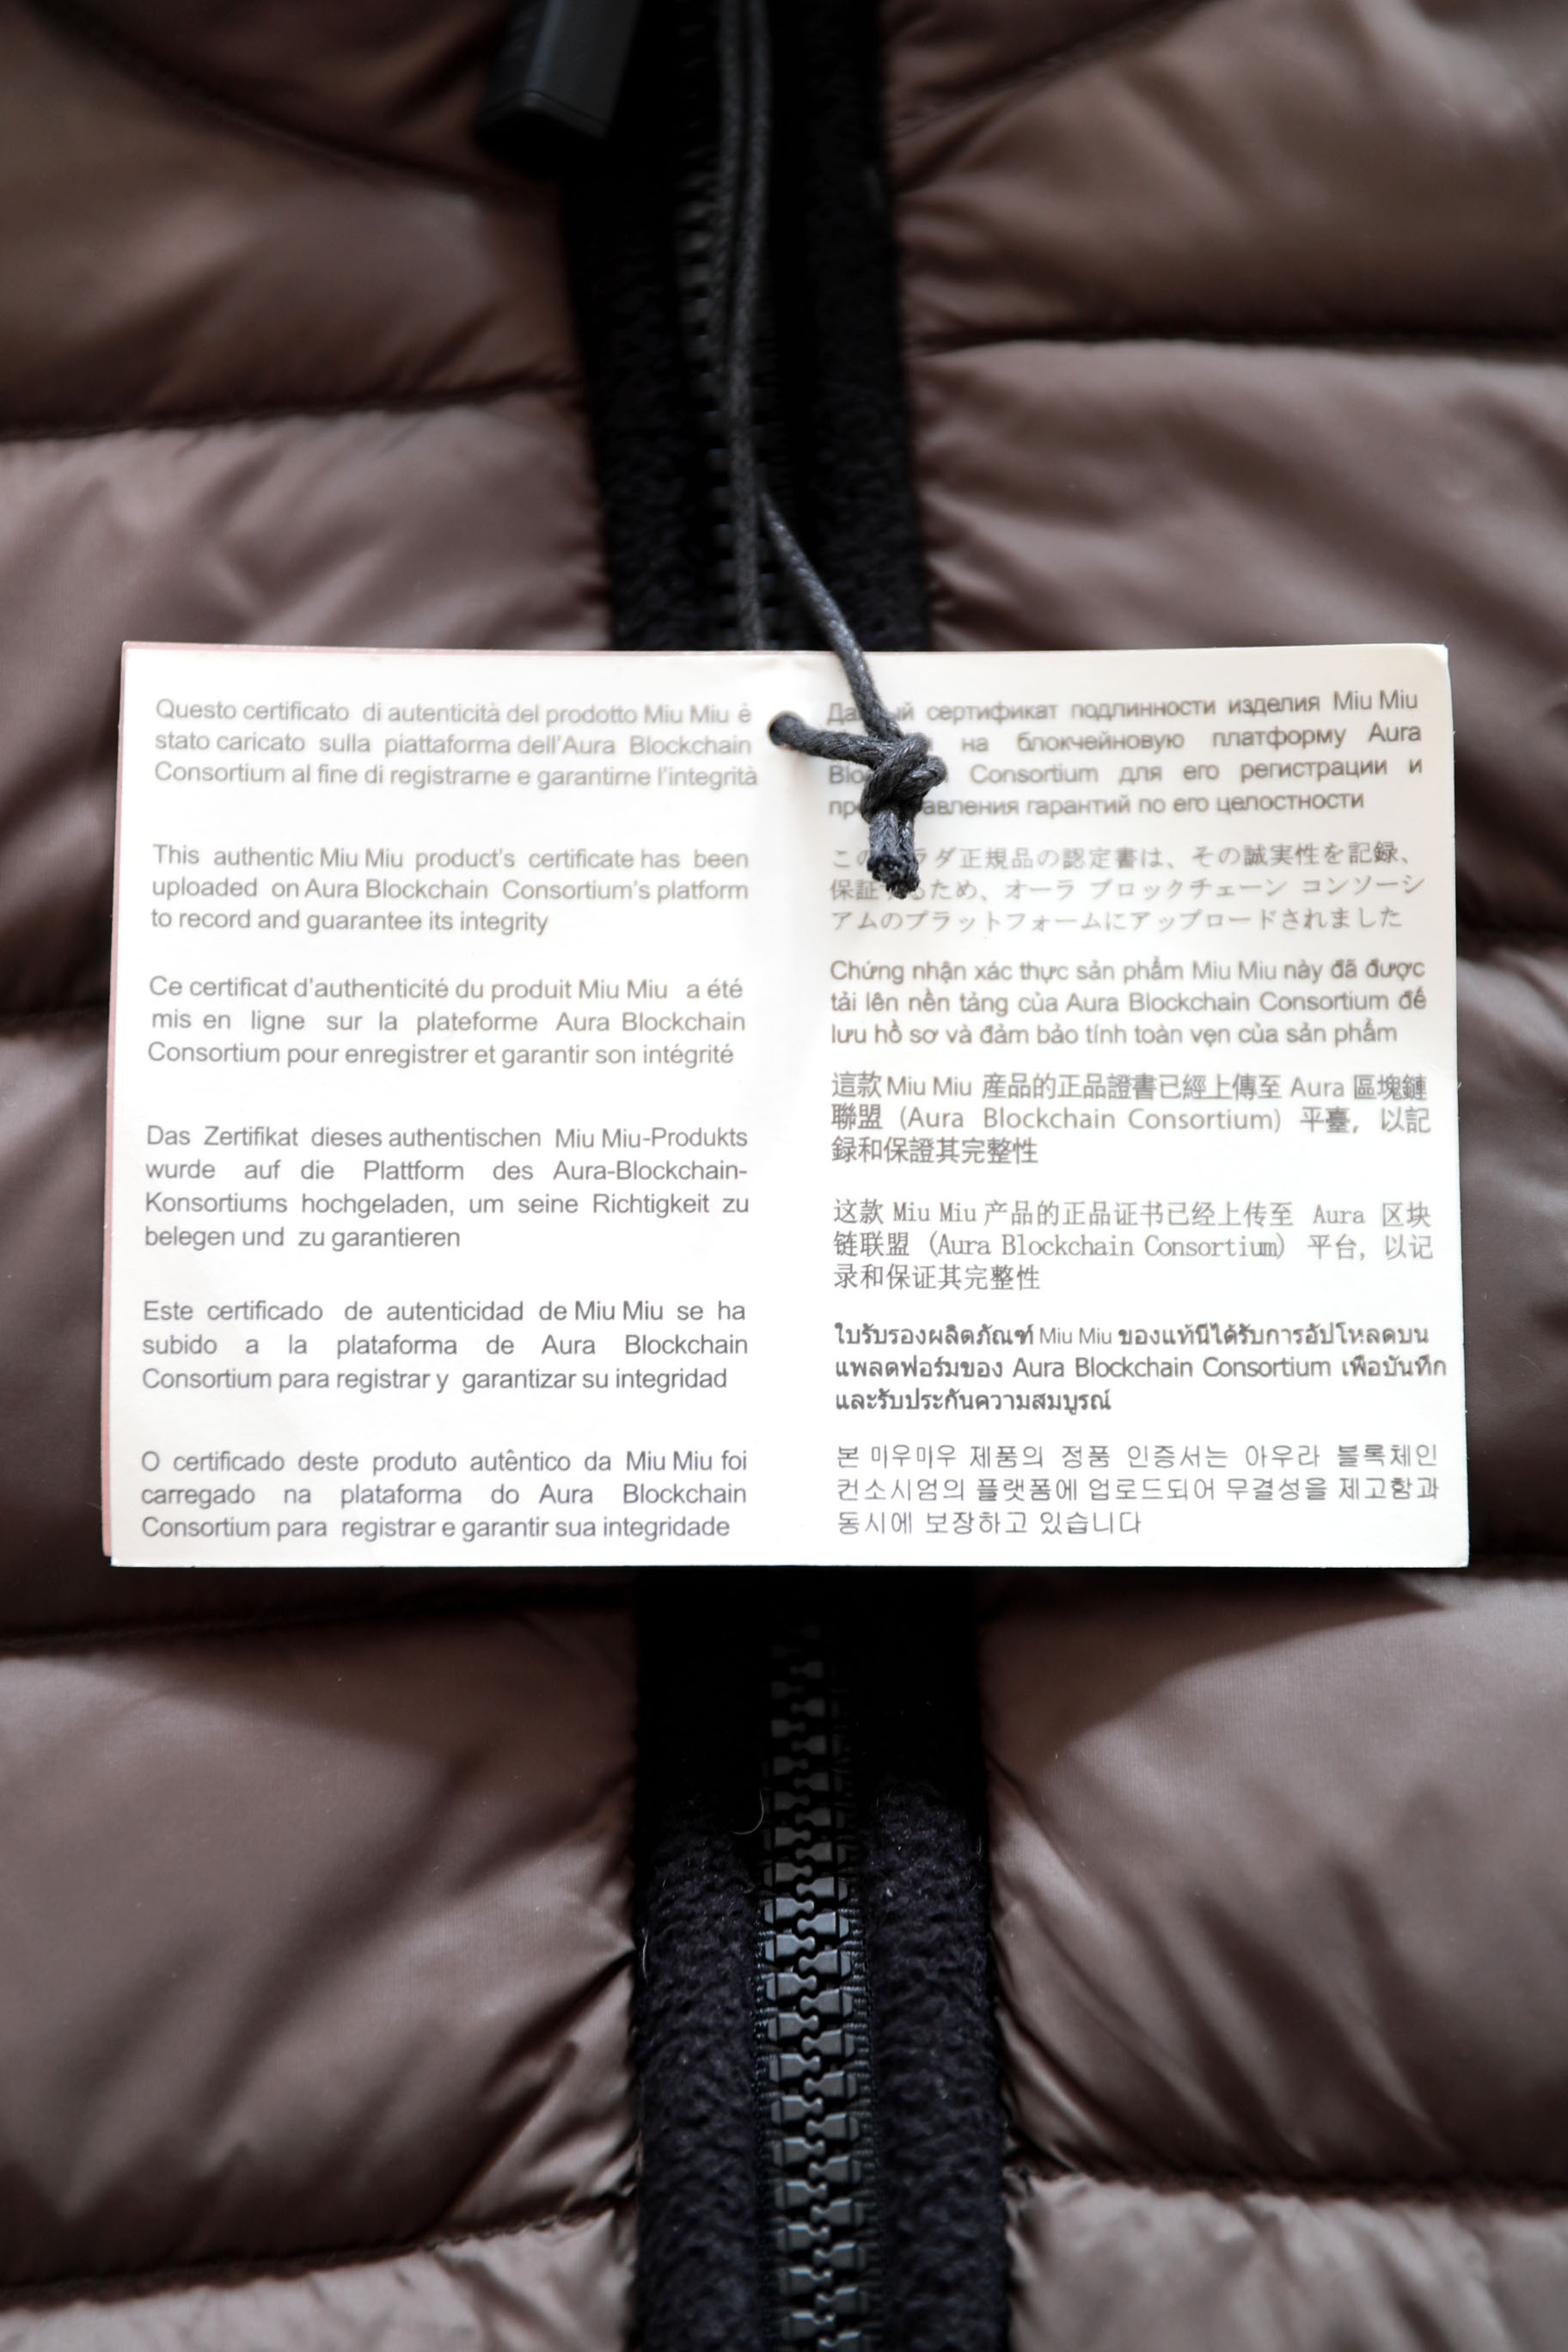 Questo certificato di autenticità del prodotto Miu Miu è
stato caricato sulla piattaforma dell'Aura Blockchain
Consortium al fine di registrarne e garantirne l'integrità
This authentic Miu Miu product's certificate has been
uploaded on Aura Blockchain Consortium's platform
to record and guarantee its integrity
Ce certificat d'authenticité du produit Miu Miu a été
mis en ligne sur la plateforme Aura Blockchain
Consortium pour enregistrer et garantir son intégrité
Das Zertifikat dieses authentischen Miu Miu-Produkts
wurde auf die Plattform des Aura-Blockchain-
Konsortiums hochgeladen, um seine Richtigkeit zu
belegen und zu garantieren
Este certificado de autenticidad de Miu Miu se ha
subido a la plataforma de Aura Blockchain
Consortium para registrar y garantizar su integridad
O certificado deste produto autêntico da Miu Miu foi
carregado na plataforma do Aura Blockchain
Consortium para registrar e garantir sua integridade
сертификат подлинности изделия Miu Miu
на блокчейновую платформу Aura
Consortium для его регистрации и
гарантий по его целостности
この ラダ正規品の認定書は、その誠実性を記録、
保証 るため、オーラ ブロックチェーン コンソーシ
アムのプラットフォームにアップロードされました
Chứng nhận xác thực sản phẩm Miu Miu này đã được
tải lên nền tảng của Aura Blockchain Consortium để
lưu hồ sơ và đảm bảo tính toàn vẹn của sản phẩm
這款 Miu Miu 產品的正品證書已經上傳至 Aura 區塊鏈
聯盟 (Aura Blockchain Consortium) 平臺，以記
錄和保證其完整性
这款 Miu Miu 产品的正品证书已经上传至 Aura 区块
链联盟 (Aura Blockchain Consortium) 平台，以记
录和保证其完整性
ใบรับรองผลิตภัณฑ์ Miu Miu ของแท้นี้ได้รับการอัปโหลดบน
แพลตฟอร์มของ Aura Blockchain Consortium เพื่อบันทึก
และรับประกันความสมบูรณ์
본 미우미우 제품의 정품 인증서는 아우라 블록체인
컨소시엄의 플랫폼에 업로드되어 무결성을 제고함과
동시에 보장하고 있습니다